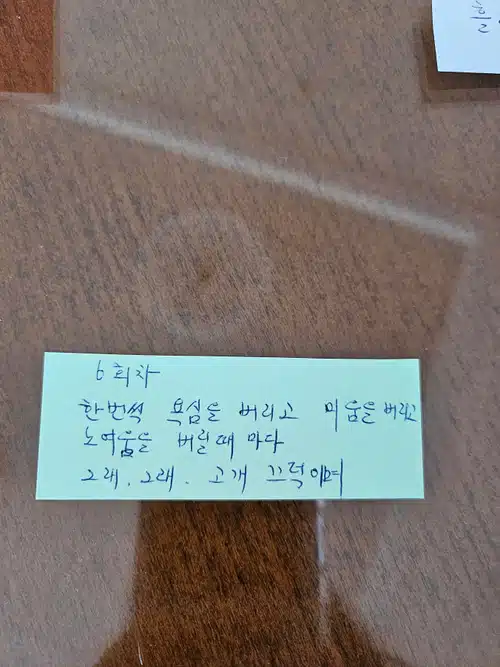 6회차
한번씩 욕심을 버리고 미움을 버리고
노여움을 버릴때 마다
그래, 그래. 고개 끄덕이며